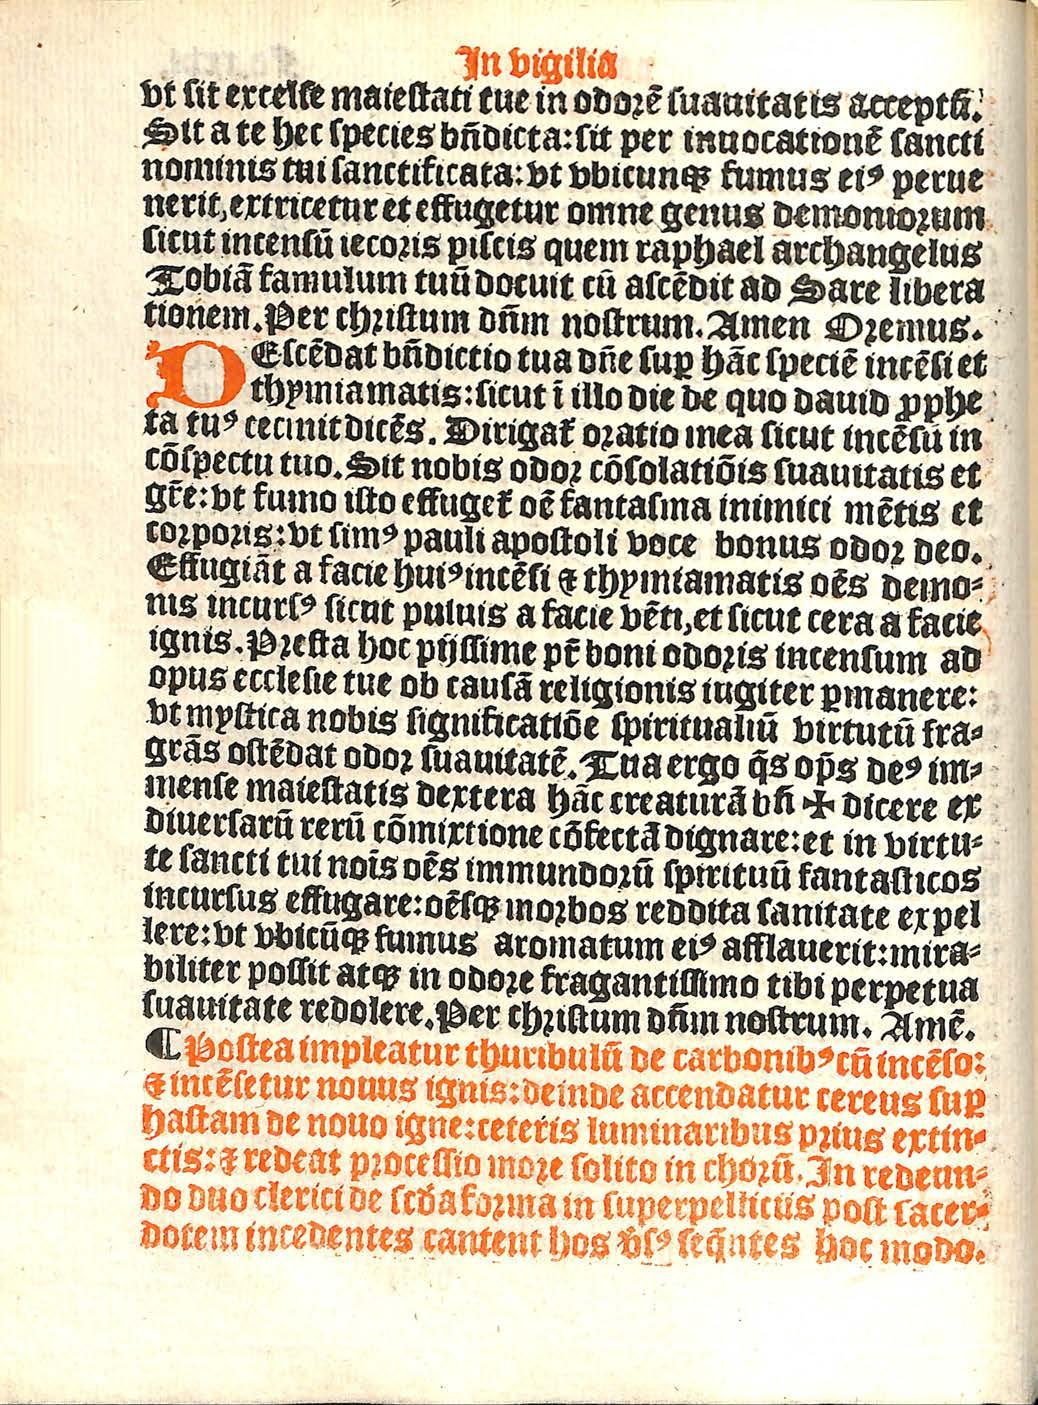 In vigilia
vt sit excelse maiestati tue in odorē suauitatis acceptū.
Sit a te hec species bn̄dicta: sit per inuocationē sancti
nominis tui sanctificata: vt vbicunqꝫ fumus eiꝰ perue
nerit, extricetur et effugetur omne genus demoniorum
sicut incensū iecoris piscis quem raphael archangelus
Tobiā famulum tuū docuit cū ascēdit ad Sare libera
tionem. Per christum dn̄m nostrum. Amen Oremus.
DEscēdat bn̄dictio tua dn̄e suꝑ hāc speciē incēsi et
thymiamatis: sicut ī illo die de quo dauid ꝓphe
ta tuꝰ cecinit dicēs. Dirigat᷑ oratio mea sicut incēsū in
cōspectu tuo. Sit nobis odor cōsolatiōis suauitatis et
gr̄e: vt fumo isto effuget᷑ oē fantasma inimici mētis et
corporis: vt simꝰ pauli apostoli voce bonus odor deo.
Effugiāt a facie huiꝰ incēsi ⁊ thymiamatis oēs demo⸗
nis incursꝰ sicut puluis a facie vēti, et sicut cera a facie
ignis. Presta hoc pijssime pr̄ boni odoris incensum ad
opus ecclesie tue ob causā religionis iugiter ꝑmanere:
vt mystica nobis significatiōe spiritualiū virtutū fra⸗
grās ostēdat odor suauitatē. Tua ergo q̄s op̄s deꝰ im⸗
mense maiestatis dextera hāc creaturā bn̄ ✠ dicere ex
diuersarū rerū cōmixtione cōfectā dignare: et in virtu⸗
te sancti tui noīs oēs immundorū spirituū fantasticos
incursus effugare: oēsqꝫ morbos reddita sanitate expel
lere: vt vbicūqꝫ fumus aromatum eiꝰ afflauerit: mira⸗
biliter possit atqꝫ in odore fragantissimo tibi perpetua
suauitate redolere. Per christum dn̄m nostrum. Amē.
¶ Postea impleatur thuribulū de carbonibꝰ cū incēso:
⁊ incēsetur nouus ignis: deinde accendatur cereus suꝑ
hastam de nouo igne: ceteris luminaribus prius extin⸗
ctis: ⁊ redeat processio more solito in chorū. In redeun⸗
do duo clerici de scd̄a forma in superpelliciis post sacer⸗
dotem incedentes cantent hos v̄sꝰ seq̄ntes hoc modo.